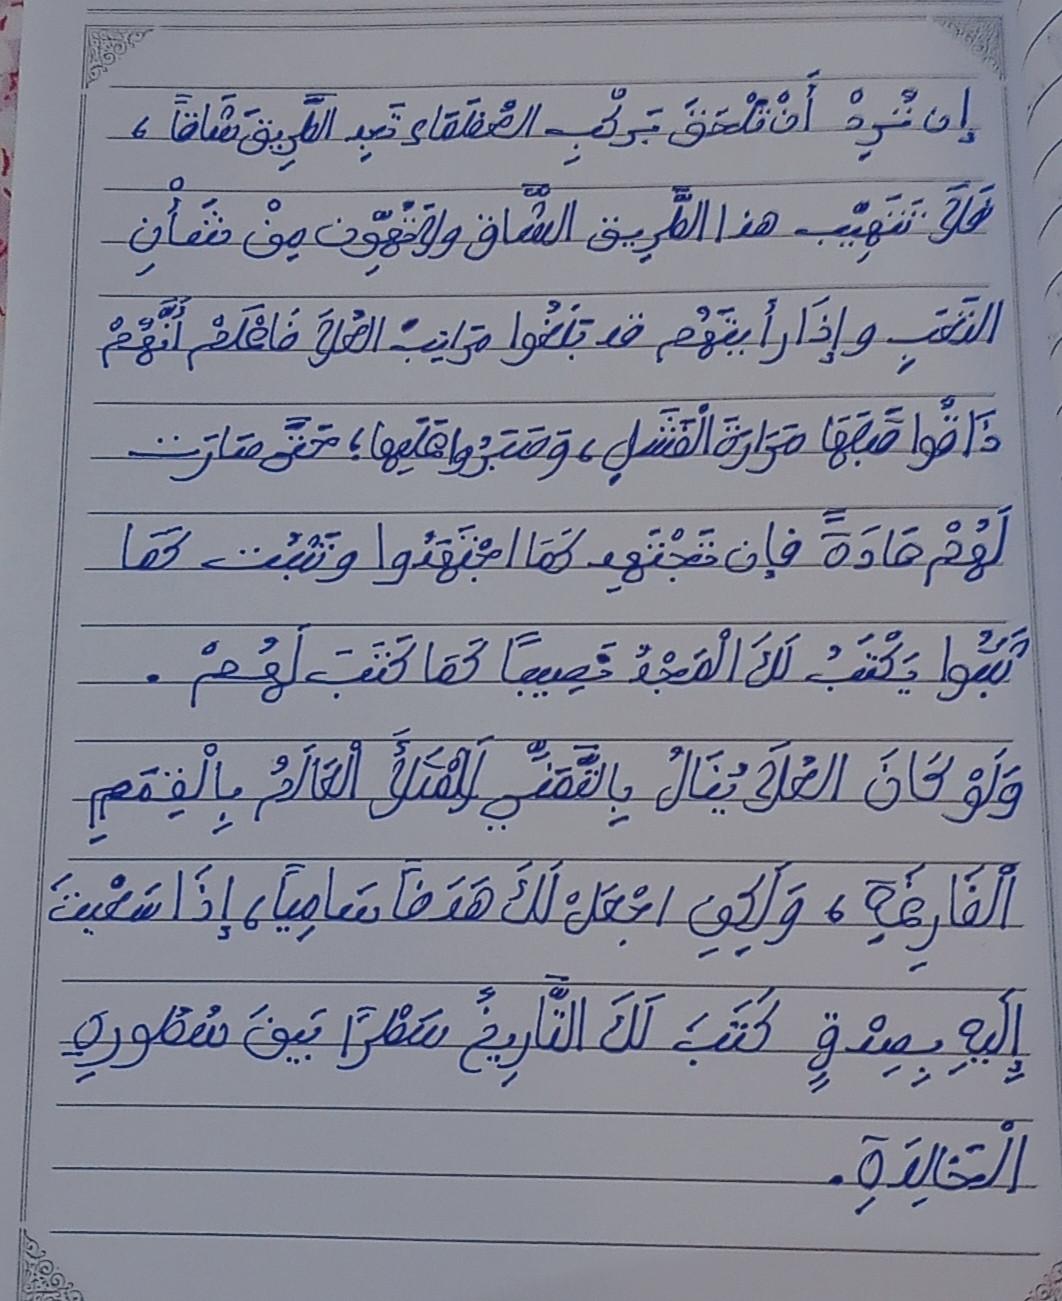 إن تُرِدْ أَنْ تَلْحَقَ بَركْبِ العُظَمَاءِ تَجِدِ الطَّرِيقَ شَاقاً ،
فَلَا تَتَهَيَّب هذا الطَّرِيق الشَّاق ولا تُهَوِّن مِنْ شَأْنِ
التَّعَبِ وإِذَا رأَيتَهُم قد بَلَغُوا مَرَاتِبَ العُلَا فَاعْلَمْ أَنَّهُمْ
ذَاقُوا قَبْلَهَا مَرَارَةَ الْفَشَلِ ، وَصَبَرُوا عَلَيهَا ؛ حَتَّى صَارَت
لَهُمْ عَادَةً فإِن تَجْتَهِد كَمَا اجْتَهَدُوا وتَثْبُت كَمَا
ثَبَتُوا يَكْتُبْ لَكَ الْمَجْدُ نَصِيبًا كَمَا كَتَبَ لَهُمْ .
وَلَوْ كَانَ العُلَا يُنَالُ بِالتَّمَنِّي لَامْتَلَأَ الْعَالَمُ بِالْقِمَمِ
الْفَارِغَةِ ، وَلَكِنِ اجْعَلْ لَكَ هَدَفاً سَامِياً ، إِذَا سَعَيْتَ
إِلَيهِ بِصِدْقٍ كَتَبَ لَكَ التَّارِيخُ سَطْرًا بَينَ سُطُورِهِ
الْخَالِدَةِ .